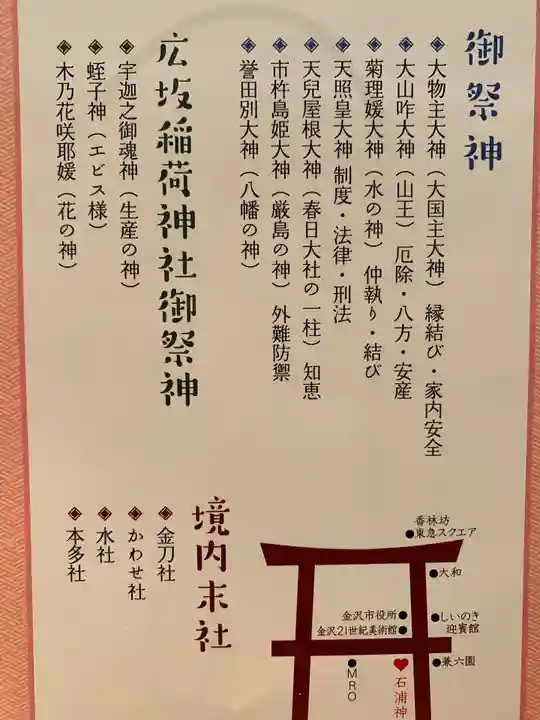 御祭神
大物主大神（大国主大神） 縁結び・家内安全
大山咋大神（山王） 厄除・八方・安産
菊理媛大神（水の神） 仲執り・結び
天照皇大神 制度・法律・刑法
天兒屋根大神（春日大社の一柱） 知恵
市杵島姫大神（厳島の神） 外難防禦
誉田別大神（八幡の神）
広坂稲荷神社御祭神
宇迦之御魂神（生産の神）
蛭子神（エビス様）
木乃花咲耶媛（花の神）
境内末社
金刀社
かわせ社
水社
本多社
香林坊
東急スクエア
大和
金沢市役所
金沢21世紀美術館
しいのき
迎賓館
MRO
石浦神
兼六園